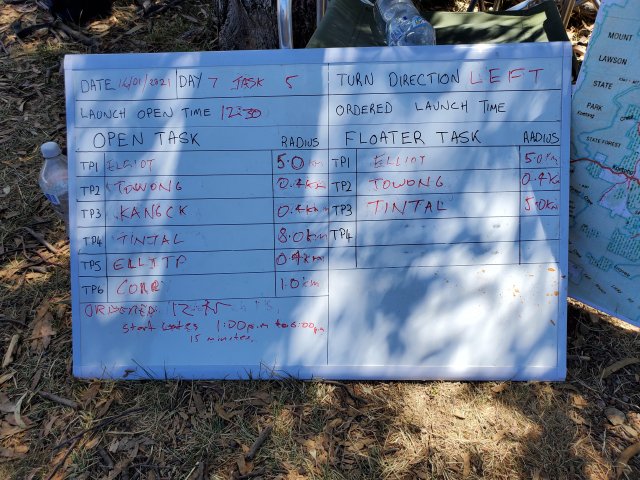 DATE 16/01/2021 DAY 7 TASK 5
TURN DIRECTION LEFT
LAUNCH OPEN TIME 12:30
ORDERED LAUNCH TIME
OPEN TASK RADIUS
TP1 ELLIOT 5.0 km
TP2 TOWONG 0.4km
TP3 KANGCK 0.4km
TP4 TINTAL 8.0km
TP5 ELLITP 0.4km
TP6 CORR 1.0km
ORDERED 12:
Start Gates 1:00p.m to 6:00pm
15 minutes.
FLOATER TASK RADIUS
TP1 ELLIOT 5.0km
TP2 TOWONG 0.4km
TP3 TINTAL 5.0km
TP4
MOUNT
LAWSON
STATE
PARK
STATE FOREST